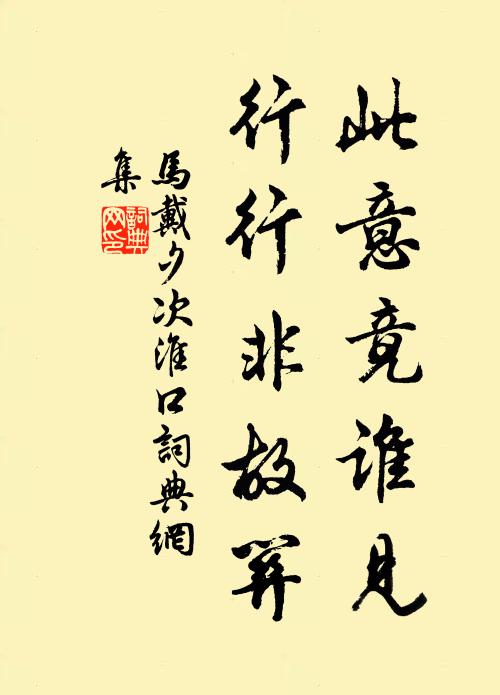 此意竟誰見
行行非故關
馬戴夕次淮口詞典網
集
詞典网印